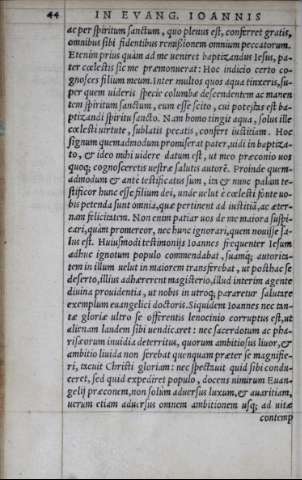 44 IN EVANG. IOANNIS
ac per spiritum sanctum, quo plenus est, conferret gratis,
omnibus sibi fidentibus remißionem omnium peccatorum.
Etenim prius quàm ad me ueniret baptizandus Iesus, pa-
ter cœlestis sic me præmonuerat: Hoc indicio certo co-
gnosces filium meum. Inter multos quos aqua tinxeris, su-
per quem uideris specie columbæ descendentem ac manen
tem spiritum sanctum, eum esse scito, cui potestas est ba-
ptizandi spiritu sancto. Nam homo tingit aqua, solus ille
cœlesti uirtute, sublatis pecatis, confert iustitiam. Hoc
signum quemadmodum promiserat pater, uidi in baptiza-
to, & ideo mihi uidere datum est, ut meo præconio uos
quoq; cognosceretis uestræ salutis autorē. Proinde quem-
admodum & ante testificatus sum, ita & nunc palàm te-
stificor hunc esse filium dei, unde uelut è cœlesti fonte uo-
bis petenda sunt omnia, quæ pertinent ad iustitiā, ac æter-
nam felicitatem. Non enim patiar uos de me maiora suspi-
cari, quàm promereor, nec hunc ignorari, quem nouisse sa-
lus est. Huiusmodi testimonijs Ioannes frequenter Iesum
adhuc ignotum populo commendabat, suamq; autorita-
tem in illum uelut in maiorem transferebat, ut posthac se
deserto, illius adhærerent magisterio, illud interim agente
diuina prouidentia, ut nobis in utroq; pararetur salutare
exemplum euangelici doctoris. Siquidem Ioannes nec tan-
tæ gloriæ ultro se offerentis lenocinio corruptus est, ut
alienam laudem sibi uendicaret: nec sacerdotum ac pha-
risæorum inuidia deterritus, quorum ambitiosus liuor, &
ambitio liuida non ferebat quenquam præter se magnifie-
ri, tacuit Christi gloriam: nec spectauit quid sibi condu-
ceret, sed quid expediret populo, docens nimirum Euan-
gelij præconem, non solùm aduersus luxum, & auaritiam,
uerum etiam aduersus omnem ambitionem usq; ad uitæ
contemp